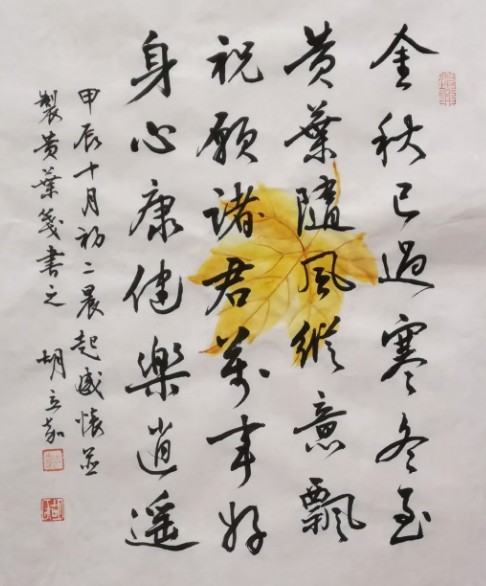 金秋已過寒冬至
黄葉隨風縱意飄
祝願諸君萬事好
身心康健樂逍遥
甲辰十月初二晨起感懷並
製黄葉箋書之 胡立嘉